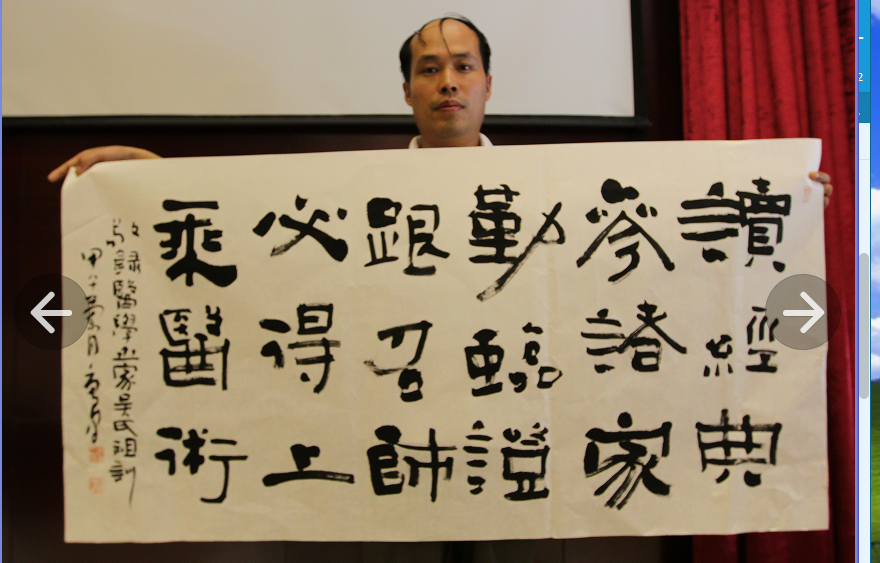 讀經典
參諸家
勤臨證
跟名師
必得上
乘醫術
敬錄醫學世家吳氏祖訓
甲午月